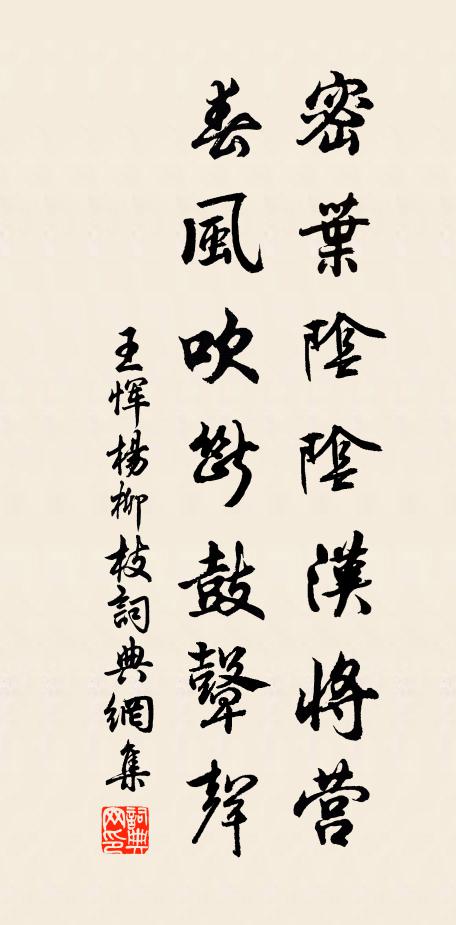 密葉陰陰漢將營
春風吹斷鼓鼙聲
王惲楊柳枝詞典網集
詞典網印